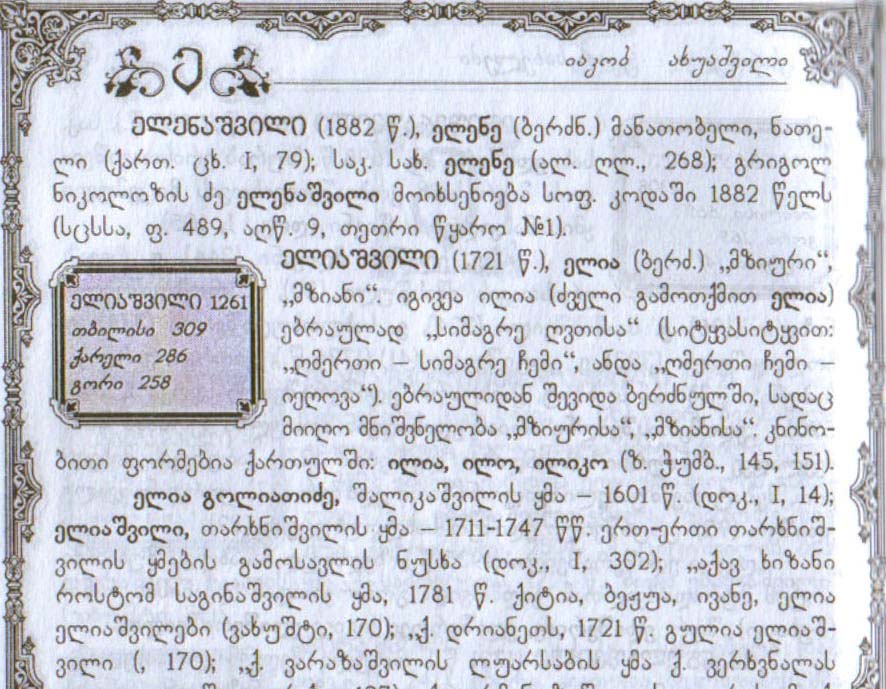 ე
იაკობ ახუაშვილი
ელენაშვილი (1882 წ.), ელენე (ბერძნ.) მანათობელი, ნათე-
ლი (ქართ. ცხ. I, 79); საკ. სახ. ელენე (ალ. ღლ., 268); გრიგოლ
ნიკოლოზის ძე ელენაშვილი მოიხსენიება სოფ. კოდაში 1882 წელს
(სცსსა, ფ. 489, აღწ. 9, თეთრი წყარო №1).
ელიაშვილი (1721 წ.), ელია (ბერძ.) „მზიური“,
„მზიანი“. იგივეა ილია (ძველი გამოთქმით ელია)
ებრაულად „სიმაგრე ღვთისა“ (სიტყვასიტყვით:
„ღმერთი – სიმაგრე ჩემი“, ანდა „ღმერთი ჩემი –
იეღოვა“). ებრაულიდან შევიდა ბერძნულში, სადაც
მიიღო მნიშვნელობა „მზიურისა“, „მზიანისა“. კნინო-
ელიაშვილი 1261
თბილისი 309
ქარელი 286
გორი 258
ბითი ფორმებია ქართულში: ილია, ილო, ილიკო (ზ. ჭუმბ., 145, 151).
ელია გოლიათიძე, შალიკაშვილის ყმა – 1601 წ. (დოკ., I, 14);
ელიაშვილი, თარხნიშვილის ყმა – 1711-1747 წწ. ერთ-ერთი თარხნიშ-
ვილის ყმების გამოსავლის ნუსხა (დოკ., I, 302); „აქავ ხიზანი
როსტომ საგინაშვილის ყმა, 1781 წ. ქიტია, ბეჟუა, ივანე, ელია
ელიაშვილები (ვახუშტი, 170); „ქ. დრიანეთს, 1721 წ. გულია ელიაშ-
ვილი (, 170); „ქ. ვარაზაშვილის ლუარსაბის ყმა ქ. ვერხვნალას